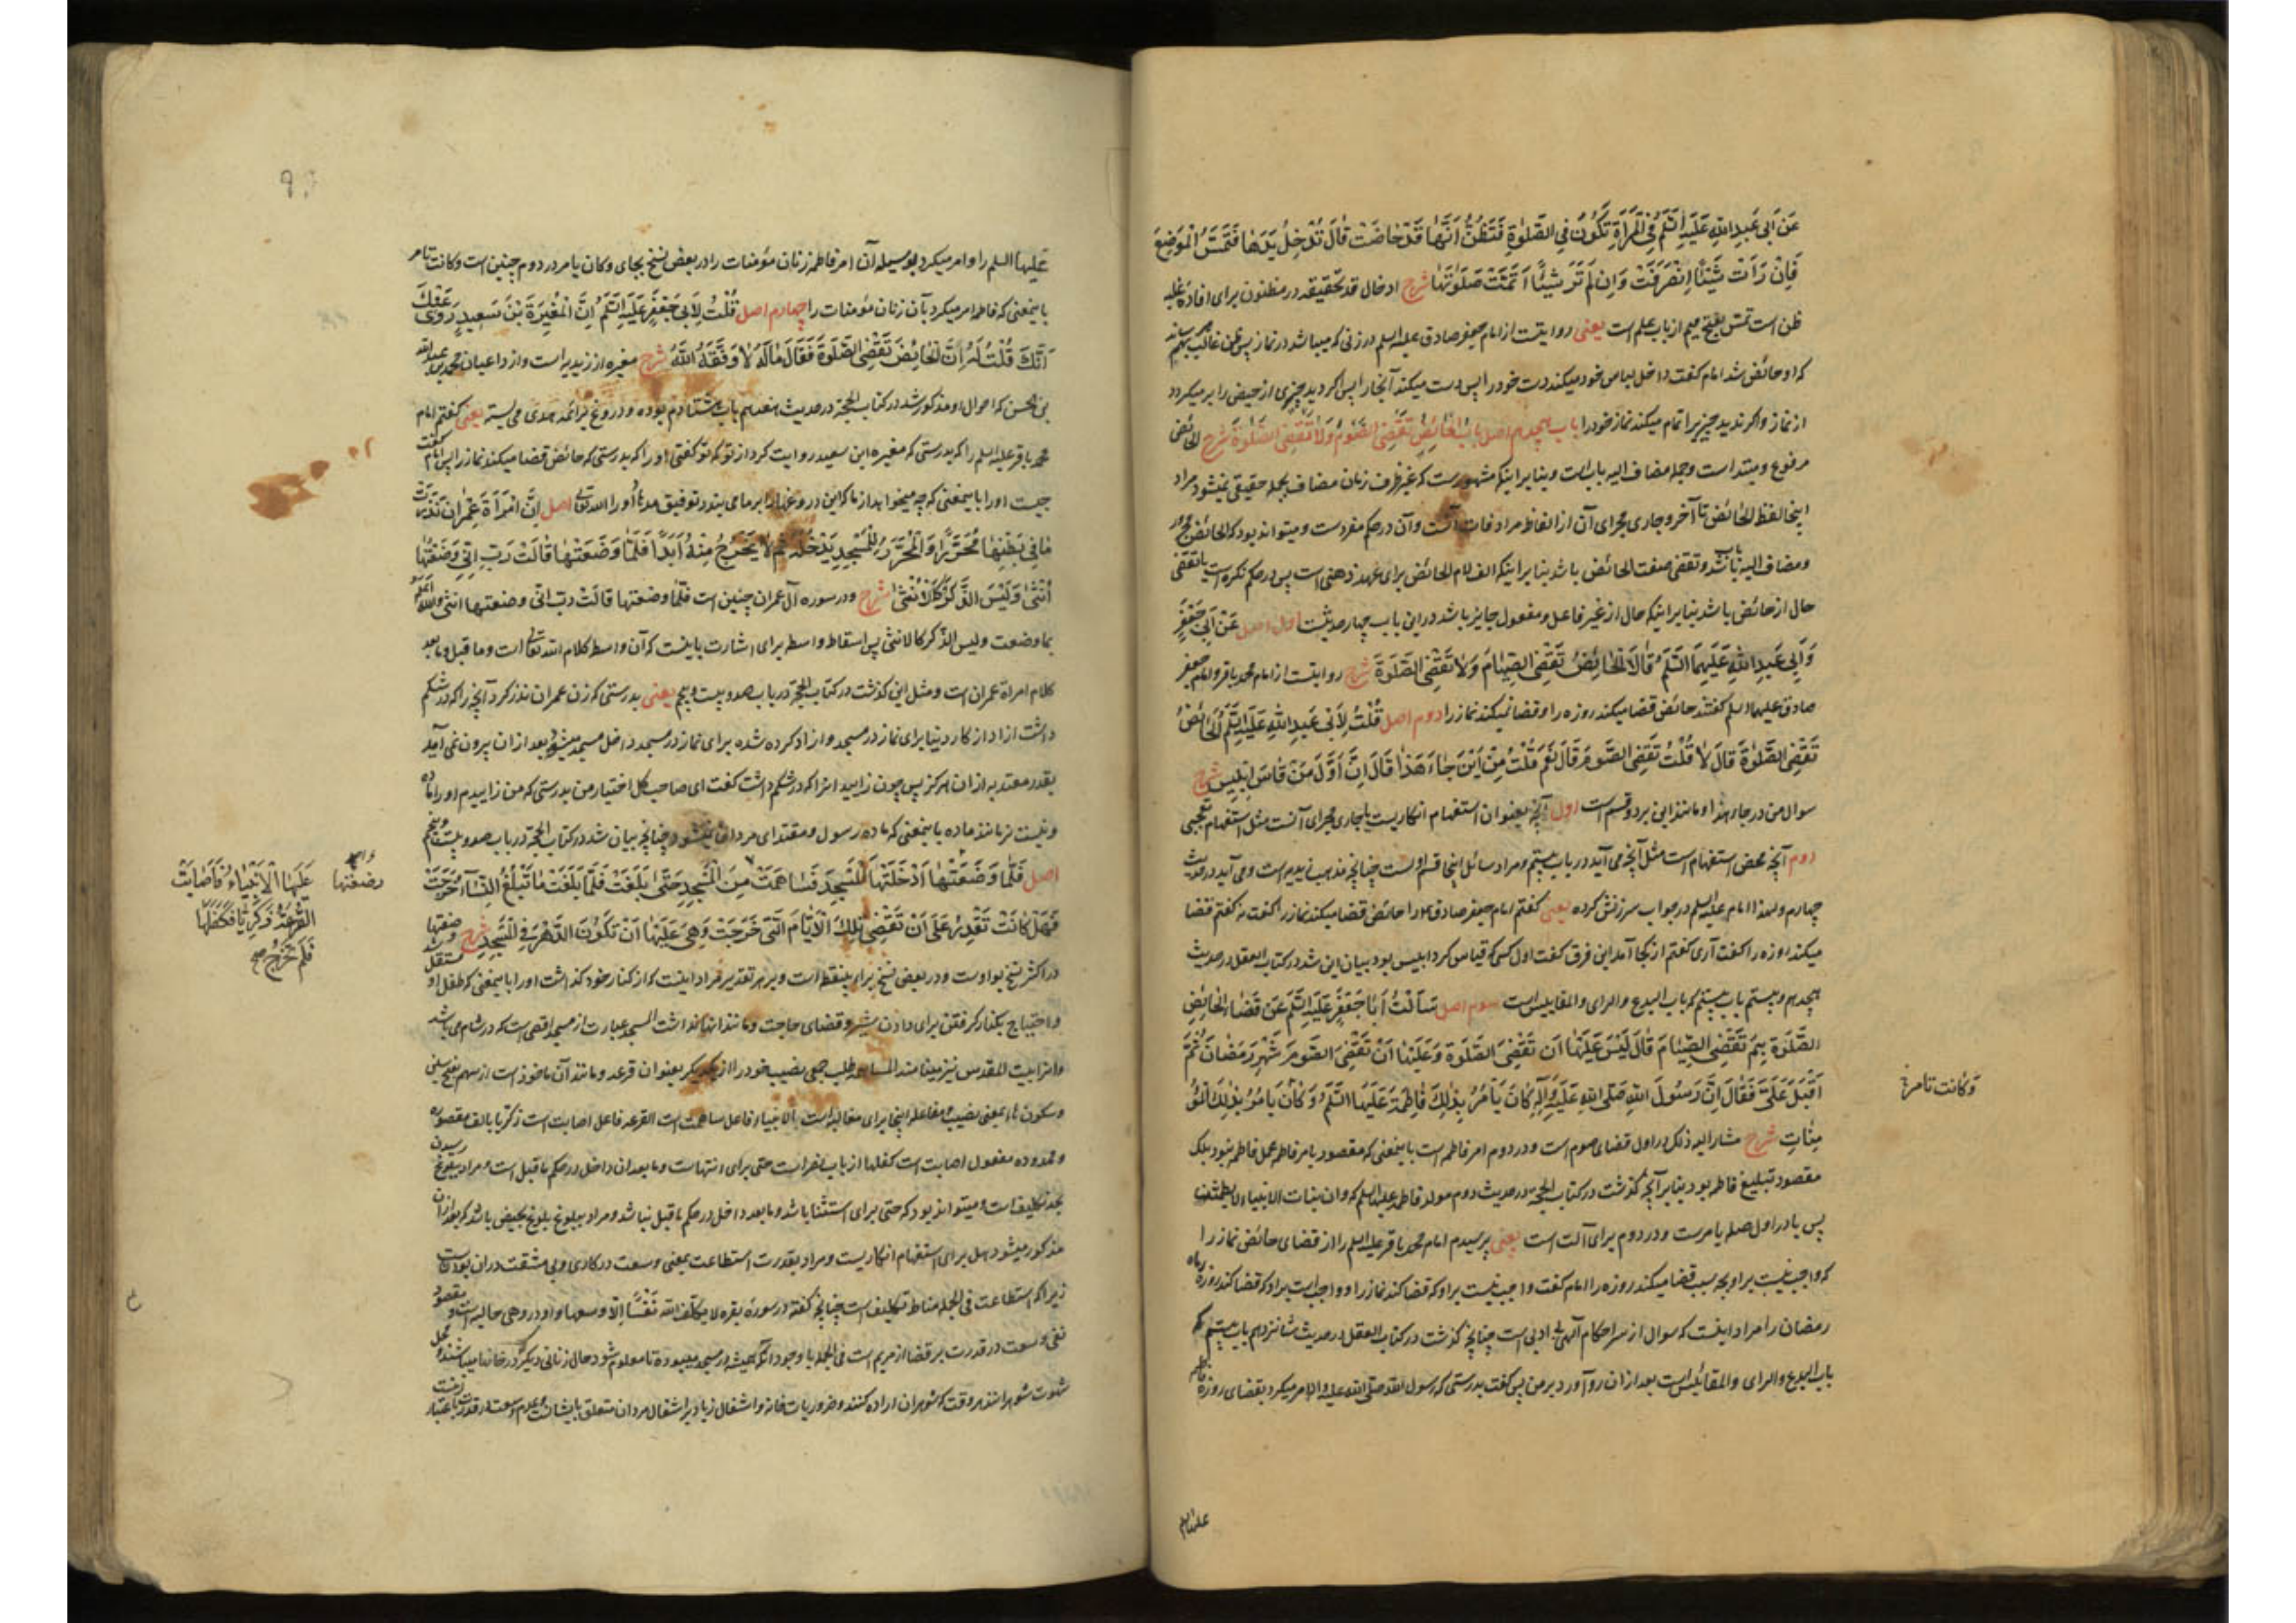 عَن اَبی عَبدِ اللهِ عَلَیهِ السَّلَمُ فِی الْمَرْأَةِ تَکُونُ فِی الصَّلٰوةِ فَتَظُنُّ اَنَّهَا قَدْ حَاضَتْ قَالَ تُدْخِلُ یَدَهَا فَتَمَسُّ الْمَوْضِعَ
فَاِنْ رَأَتْ شَیْئًا اِنْصَرَفَتْ وَاِنْ لَمْ تَرَ شَیْئًا اَتَمَّتْ صَلٰوتَهَا شرح ادخال قد تحقیقیه در مظنون برای افادهٔ غلبه
ظن است تمس بفتح میم از باب علم است یعنی روایتست از امام جعفر صادق علیه السلم در زنی که میباشد در نماز پس ظن غالب بهم میرساند
که او حائض شد امام کفت داخل لباس خود میکند دست خود را پس دست میکند آنجا را پس اکر دید چیزی از حیض را برمیکردد
از نماز واکر ندید چیزیرا تمام میکند نماز خود را باب هیجدهم اصل بَابُ الْحَائِضِ تَقْضِی الصَّوْمَ وَلَا تَقْضِی الصَّلٰوةَ شرح الحائض
مرفوع ومبتداست وجمله مضاف الیه باب است وبنا بر اینکه مشهورست که غیر ظرف زمان مضاف بجمله حقیقی نمیشود مراد
اینجا لفظ الحائض تا آخر وجاری مجرای آن از الفاظ مرادفات آنست وآن در حکم مفردست ومیتواند بود که الحائض مجرور
ومضاف الیه باب باشد وتقضی صفت الحائض باشد بنا بر اینکه الف لام الحائض برای عهد ذهنی است پس در حکم نکره است یا تقضی
حال از حائض باشد بنا بر اینکه حال از غیر فاعل ومفعول جایز باشد در این باب چهار حدیثست اول اصل عَنْ اَبِی جَعْفَرٍ
وَاَبِی عَبدِ اللهِ عَلَیهِمَا السَّلَمُ قَالَا الْحَائِضُ تَقْضِی الصِّیَامَ وَلَا تَقْضِی الصَّلٰوةَ شرح روایتست از امام محمد باقر وامام جعفر
صادق علیهما السلم کفتند حائض قضا میکند روزه را وقضا نمیکند نماز را دوم اصل قُلْتُ لِاَبِی عَبدِ اللهِ عَلَیهِ السَّلَمُ الْحَائِضُ
تَقْضِی الصَّلٰوةَ قَالَ لَا قُلْتُ تَقْضِی الصَّومَ قَالَ نَعَمْ قُلْتُ مِنْ اَیْنَ جَاءَ هَذَا قَالَ اِنَّ اَوَّلَ مَنْ قَاسَ اِبْلِیسُ شرح
سوال من در جاء هذا ومانند این بر دو قسم است اول آنچه بعنوان استفهام انکاریست یا جاری مجرای آنست مثل استفهام تعجبی
دوم آنچه محض استفهام است مثل آنچه می آید در باب بیستم ومراد سائل اینجا قسم اولست چنانچه مذهب زیدیه است ومی آید در حدیث
چهارم ولهذا امام علیه السلم در جواب سرزنش کرده یعنی کفتم امام جعفر صادق ع را حائض قضا میکند نماز را کفت نه کفتم قضا
میکند روزه را کفت آری کفتم از کجا آمد این فرق کفت اول کسی که قیاس کرد ابلیس بود بیان این شد در کتاب العقل در حدیث
هیجدهم وبیستم باب بیستم که باب البدع والرای والمقاییس است سوم اصل سَاَلْتُ اَبَا جَعْفَرٍ عَلَیهِ السَّلَمُ عَنْ قَضَاءِ الْحَائِضِ
الصَّلٰوةَ ثُمَّ تَقْضِی الصِّیَامَ قَالَ لَیْسَ عَلَیْهَا اَنْ تَقْضِیَ الصَّلٰوةَ وَعَلَیْهَا اَنْ تَقْضِیَ الصَّومَ شَهْرَ رَمَضَانَ ثُمَّ
اَقْبَلَ عَلَیَّ فَقَالَ اِنَّ رَسُولَ اللهِ صَلَّی اللهُ عَلَیهِ وَآلِهِ کَانَ یَأْمُرُ بِذٰلِکَ فَاطِمَةَ عَلَیهَا السَّلَمُ وَکَانَ یَأْمُرُ بِذٰلِکَ الْمُؤْ
مِنَاتِ شرح مشار الیه ذلک در اول قضای صوم است ودر دوم امر فاطمه است باینمعنی که مقصود یامر فاطمه عمل فاطمه نبود بلکه
مقصود تبلیغ فاطمه بود بنا بر آنچه کذشت در کتاب الحجة در حدیث دوم مولد فاطمه علیها السلم که وان بنات الانبیاء لا یطمثن
پس با در اول صله یامرست ودر دوم برای آلت است یعنی پرسیدم امام محمد باقر علیه السلم را از قضای حائض نماز را
که واجب نیست بر او بچه سبب قضا میکند روزه را امام کفت واجب نیست بر او که قضا کند نماز را وواجب است بر او که قضا کند روزه ماه
رمضان را مراد اینست که سوال از سر احکام الهی بی ادبی است چنانچه کذشت در کتاب العقل در حدیث شانزدهم باب بیستم که
باب البدع والرای والمقاییس است بعد از ان رو آورد بر من پس کفت بدرستی که رسول الله صلی الله علیه واله امر میکرد بقضای روزه فاطمه
وَکَانَت تامر
علیها السلم
علیها السلم را وامر میکرد بوسیله آن امر فاطمه زنان مؤمنات را در بعض نسخ بجای وکان یامر در دوم چنین است وکانت تامر
باینمعنی که فاطمه امر میکرد بآن زنان مؤمنات را چهارم اصل قُلْتُ لِاَبِی جَعْفَرٍ عَلَیهِ السَّلَمُ اِنَّ الْمُغِیرَةَ بْنَ سَعِیدٍ رَوَی عَنْکَ
اَنَّکَ قُلْتَ لَهُ اِنَّ الْحَائِضَ تَقْضِی الصَّلٰوةَ فَقَالَ مَا لَهُ لَا وَفَّقَهُ اللهُ شرح مغیره از زیدیه است واز داعیان محمد بن عبدالله
بن الحسن که احوال او مذکور شد در کتاب الحجة در حدیث هفدهم باب هشتادم بوده ودروغ بر ائمه هدی می بسته یعنی کفتم امام
محمد باقر علیه السلم را که بدرستی که مغیره ابن سعید روایت کرد از تو که تو کفتی او را که بدرستی که حائض قضا میکند نماز را پس امام کفت
چیست او را باینمعنی که چه میخواهد از ما که این دروغها را بر ما می بندد توفیق مدهاد او را الله تعالی اصل اِنَّ امْرَأَةَ عِمْرَانَ نَذَرَتْ
مَا فِی بَطْنِهَا مُحَرَّرًا وَالْمُحَرَّرُ لِلْمَسْجِدِ یَدْخُلُهُ ثُمَّ لَا یَخْرُجُ مِنْهُ اَبَدًا فَلَمَّا وَضَعَتْهَا قَالَتْ رَبِّ اِنِّی وَضَعْتُهَا
اُنْثٰی وَلَیْسَ الذَّکَرُ کَالْاُنْثٰی شرح ودر سوره آل عمران چنین است فلما وضعتها قالت رب انی وضعتها انثی والله اعلم
بما وضعت ولیس الذکر کالانثی پس اسقاط واسطه برای اشارت باینست که آن واسط کلام الله تعالی است وما قبل وما بعد
کلام امراة عمران است ومثل این کذشت در کتاب الحجة در باب صد وبیست وپنجم یعنی بدرستی که زن عمران نذر کرد آنچه را که در شکم
داشت ازاد از کار دنیا برای نماز در مسجد وازاد کرده شده برای نماز در مسجد داخل مسجد میشود بعد از ان بیرون نمی آید
بقدر معتد به از ان هرکز پس چون زایید انرا که در شکم داشت کفت ای صاحب کل اختیار من بدرستی که من زاییدم او را ماده
ونیست نر مانند ماده باینمعنی که ماده رسول ومقتدای مردان نمیشود چنانچه بیان شد در کتاب الحجة در باب صد وبیست وپنجم
اصل فَلَمَّا وَضَعَتْهَا اَدْخَلَتْهَا الْمَسْجِدَ فَسَاهَمَتْ مِنَ الْمَسْجِدِ حَتّٰی بَلَغَتْ فَلَمَّا بَلَغَتْ مَا تَبْلُغُ النِّسَآءُ خَرَجَتْ
فَهَلْ کَانَتْ تَقْدِرُ عَلٰی اَنْ تَقْضِیَ تِلْکَ الْاَیَّامَ الَّتِی خَرَجَتْ وَهِیَ عَلَیْهَا اَنْ تَکُونَ الدَّهْرَ فِی الْمَسْجِدِ شرح
در اکثر نسخ بواو است ودر بعض نسخ برای بینقطه است وبر هر تقدیر مراد اینست که از کنار خود کذاشت او را باینمعنی که طفل او
واحتیاج بکنار کرفتن برای دادن شیر وقضای حاجت ومانند انها نداشت المسجد عبارت از مسجد اقصی است که در شام می باشد
وانرا بیت المقدس نیز مینامند المساهمه طلب جمعی نصیب خود را از یکدیکر بعنوان قرعه ومانند آن ماخوذ است از سهم بفتح سین
وسکون هاء بمعنی نصیب ومفاعله اینجا برای مغالبه است الانبیاء فاعل ساهمت است القرعه فاعل اصابت است زکریا بالف مقصوره
وممدوده مفعول اصابت است کفلها از باب نصر است حتی برای انتهاست وما بعد ان داخل در حکم ما قبل است ومراد ببلوغ رسیدن
بحد تکلیف است ومیتواند بود که حتی برای استثنا باشد وما بعد داخل در حکم ما قبل نباشد ومراد ببلوغ بلوغ بحیض باشد که بعد از ان
مذکور میشود هل برای استفهام انکاریست ومراد بقدرت استطاعت بمعنی وسعت در کاری وبی مشقت در ان بودنست
زیرا که استطاعت فی الجمله مناط تکلیف است چنانچه کفته در سوره بقره لا یکلف الله نفسًا الا وسعها واو در وهی حالیه است ومقصود
نفی وسعت در قدرت بر قضا از مریم است فی الجمله با وجود انکه همیشه در مسجد میبوده تا معلوم شود حال زنانی دیکر که در خانها میباشند ومحل
شهوت شوهرانند هر وقت که شوهران اراده کنند وضروریات خانه واشغال زیاد بر اشغال مردان متعلق بایشانست
وضعتها
عَلَیهَا الْاَنْبِیَاءُ فَاَصَابَتْ
الْقُرْعَةُ زَکَرِیَّا فَکَفَلَهَا
فَلَمْ تَخْرُجْ صح